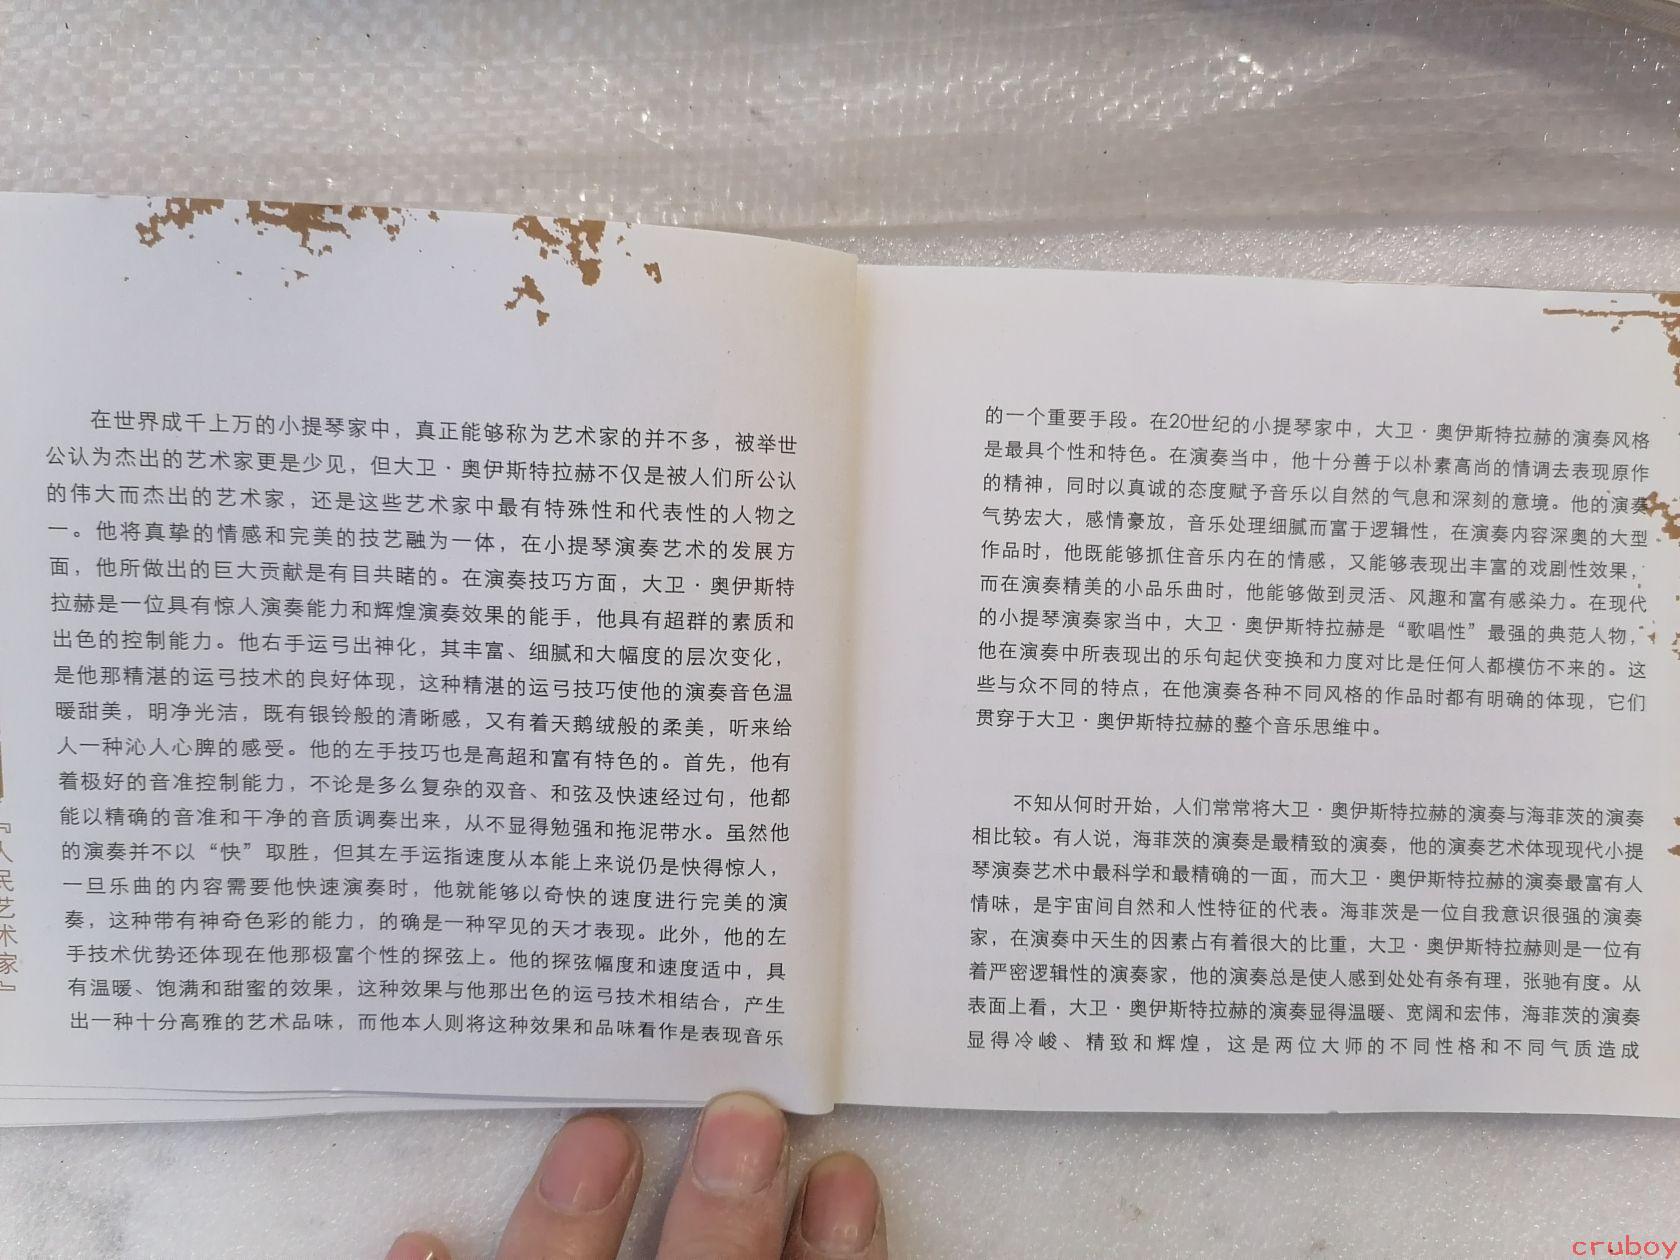 在世界成千上万的小提琴家中，真正能够称为艺术家的并不多，被举世
公认为杰出的艺术家更是少见，但大卫·奥伊斯特拉赫不仅是被人们所公认
的伟大而杰出的艺术家，还是这些艺术家中最有特殊性和代表性的人物之
一。他将真挚的情感和完美的技艺融为一体，在小提琴演奏艺术的发展方
面，他所做出的巨大贡献是有目共睹的。在演奏技巧方面，大卫·奥伊斯特
拉赫是一位具有惊人演奏能力和辉煌演奏效果的能手，他具有超群的素质和
出色的控制能力。他右手运弓出神化，其丰富、细腻和大幅度的层次变化，
是他那精湛的运弓技术的良好体现，这种精湛的运弓技巧使他的演奏音色温
暖甜美，明净光洁，既有银铃般的清晰感，又有着天鹅绒般的柔美，听来给
人一种沁人心脾的感受。他的左手技巧也是高超和富有特色的。首先，他有
着极好的音准控制能力，不论是多么复杂的双音、和弦及快速经过句，他都
能以精确的音准和干净的音质调奏出来，从不显得勉强和拖泥带水。虽然他
的演奏并不以“快”取胜，但其左手运指速度从本能上来说仍是快得惊人，
一旦乐曲的内容需要他快速演奏时，他就能够以奇快的速度进行完美的演
奏，这种带有神奇色彩的能力，的确是一种罕见的天才表现。此外，他的左
手技术优势还体现在他那极富个性的探弦上。他的探弦幅度和速度适中，具
有温暖、饱满和甜蜜的效果，这种效果与他那出色的运弓技术相结合，产生
出一种十分高雅的艺术品味，而他本人则将这种效果和品味看作是表现音乐
『人民艺术家』
的一个重要手段。在20世纪的小提琴家中，大卫·奥伊斯特拉赫的演奏风格
是最具个性和特色。在演奏当中，他十分善于以朴素高尚的情调去表现原作
的精神，同时以真诚的态度赋予音乐以自然的气息和深刻的意境。他的演奏
气势宏大，感情豪放，音乐处理细腻而富于逻辑性，在演奏内容深奥的大型
作品时，他既能够抓住音乐内在的情感，又能够表现出丰富的戏剧性效果，
而在演奏精美的小品乐曲时，他能够做到灵活、风趣和富有感染力。在现代
的小提琴演奏家当中，大卫·奥伊斯特拉赫是“歌唱性”最强的典范人物，
他在演奏中所表现出的乐句起伏变换和力度对比是任何人都模仿不来的。这
些与众不同的特点，在他演奏各种不同风格的作品时都有明确的体现，它们
贯穿于大卫·奥伊斯特拉赫的整个音乐思维中。
不知从何时开始，人们常常将大卫·奥伊斯特拉赫的演奏与海菲茨的演奏
相比较。有人说，海菲茨的演奏是最精致的演奏，他的演奏艺术体现现代小提
琴演奏艺术中最科学和最精确的一面，而大卫·奥伊斯特拉赫的演奏最富有人
情味，是宇宙间自然和人性特征的代表。海菲茨是一位自我意识很强的演奏
家，在演奏中天生的因素占有着很大的比重，大卫·奥伊斯特拉赫则是一位有
着严密逻辑性的演奏家，他的演奏总是使人感到处处有条有理，张驰有度。从
表面上看，大卫·奥伊斯特拉赫的演奏显得温暖、宽阔和宏伟，海菲茨的演奏
显得冷峻、精致和辉煌，这是两位大师的不同性格和不同气质造成
cruboy